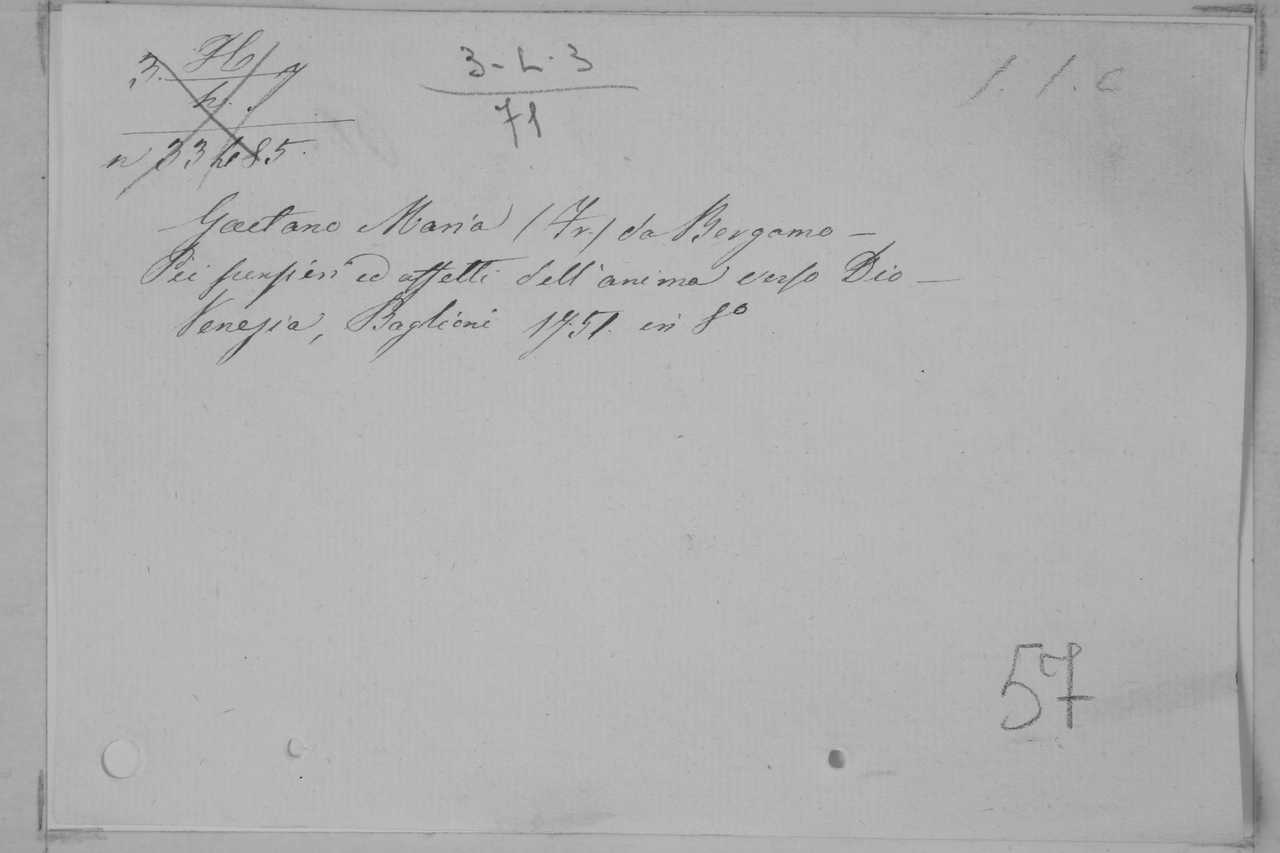 3. H 7
h.
3-L.3
71
1.1.c
Gaetano Maria (Fr.) da Bergamo —
Pii pensieri ed affetti dell'anima verso Dio —
Venezia, Baglioni 1751. in 8º
57